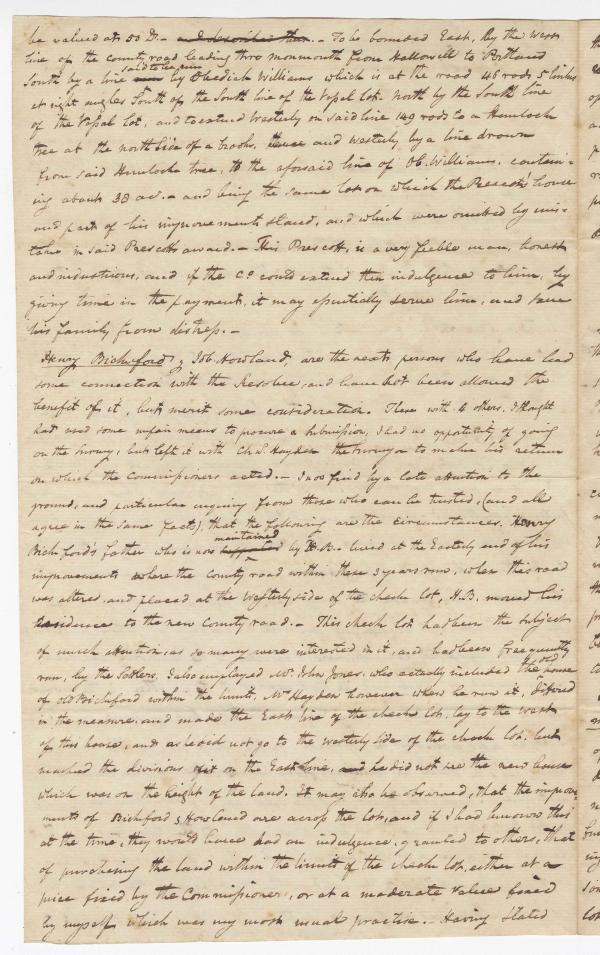 be valued at 50 D.– and described thus. – To be bounded East, by the West
line of the county road leading thro monmouth from Hallowell to Portland
South by a line said to be run run by Obediah Williams which is at the road 46 rods 5 links
at right angles South of the South line of the Vassal Lot. North by the South line
of the Vassal Lot, and to extend Westerly on said line 149 rods to a Hemlock
tree at the north side of a brook. thence and westerly, by a line drawn
from said Hemlock tree, to the aforsaid line of Ob. Williams. contain-
ing about 38 ac. – and being the same lot on which the Prescott's house
and part of his improvements stand, and which were omitted by mis-
take in said Prescotts award. – This Prescott, is a very feeble man, honest
and industrious, and if the Co. could extend then indulgence to him, by
giving time in the payment, it may essentially serve him, and save
his family from distress. –
Henry Bickford, & Job Howland, are the next persons who have had
some connection with the Resolve, and have not been allowed the
benefit of it, but merit some consideration. These with 4 others, I thought
had used some unfair means to procure a submission, I had no oppertunity of going
on the Survey, but left it with Chs. Hayden the Surveyor to make his return
on which the Commissioners acted. – I now find by a late attention to the
ground, and particular enquiry from those who can be trusted, (and all
agree in the same facts), that the following are the Circumstances. Henry
Bickford's father who is now maintained supported by H.B. – lived at the Easterly end of his
improvements where the County road within these 3 years run, when this road
was altered, and placed at the westerly side of the check lot, H.B. moved his
residence to the new County road. – This check lot has been the subject
of much attention, as so many were interested in it, and has been frequently
run, by the Settlers, I also employed Mr. John Jones, who actually included the old house
of old Bickford within the limits, Mr Hayden however when he run it, differed
in the measure, and made the East line of the check lot, lay to the west
of this house, and as he did not go to the westerly side of the check lot, but
marked the divisions out on the East line, and he did not see the new house
which was on the height of the land. It may also be observed, that the improve-
ments of Bickford & Howland are across the lots, and if I had known this
at the time, they would have had an indulgence, granted to others, that
of purchasing the land within the limits of the check lot, either at a
price fixed by the Commissioners, or at a moderate value fixed
by myself which was my most usual practise. – Having stated